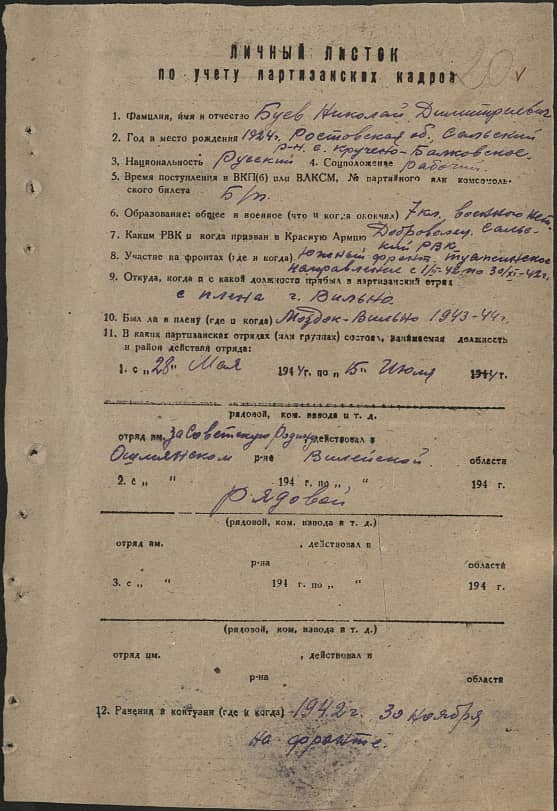 ЛИЧНЫЙ ЛИСТОК
по учету партизанских кадров
20
1. Фамилия, имя и отчество Буев Николай Димитриевич
2. Год и место рождения 1924г. Ростовская об. Сальский
р-н с. Кручено-Балковское.
3. Национальность Русский 4. Соцположение рабочий
5. Время поступления в ВКП(б) или ВЛКСМ, № партийного или комсомоль-
ского билета
Б/п.
6. Образование: общее и военное (что и когда окончил) 7кл. военного нет
7. Каким РВК и когда призван в Красную Армию Доброволец. Саль-
ский РВК
8. Участие на фронтах (где и когда) Южный фронт, туапсинское
направление с 1/II-42 по 30/XI-42г.
9. Откуда, когда и с какой должности прибыл в партизанский отряд
с плена г. Вильно.
10. Был ли в плену (где и когда) Моздок-Вильно 1943-44г.
11. В каких партизанских отрядах (или группах) состоял, занимаемая должность
и район действия отряда:
1. с „28" Мая 1944г. по „15" Июля 1944г.
рядовой, ком. взвода и т. д.
отряд им. за Советскую Родину, действовал в
Ошмянском р-не Вилейской области
2. с „ " 194 г. по „ " 194 г.
Рядовой
(рядовой, ком. взвода и т. д.)
отряд им. , действовал в
р-на области
3. с „ " 194 г. по „ " 194 г.
(рядовой, ком. взвода и т. д.)
отряд им. , действовал в
р-на области
12. Ранения и контузии (где и когда) 1942г. 30 ноября
на фронте.